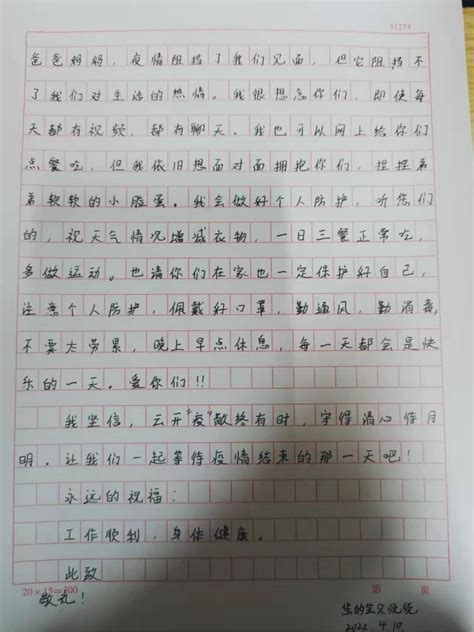 51274
爸爸妈妈，疫情阻挡了我们见面，但它阻挡不
了我们对生活的热情。我很想念你们，即使每
天都有视频，都有聊天。我也可以网上给你们
点餐吃，但我依旧想面对面拥抱你们，捏捏弟
弟软软的小脸蛋。我会做好个人防护，听您们
的，视天气情况增减衣物，一日三餐正常吃，
多做运动。也请你们在家也一定保护好自己，
注意个人防护，佩戴好口罩，勤通风，勤消毒，
不要太劳累，晚上早点休息，每一天都会是快
乐的一天。爱你们!!
我坚信，云开“疫”散终有时，守得清心待月
明。让我们一起等待疫情结束的那一天吧！
永远的祝福：
工作顺利，身体健康。
此致
20×15=300 第 页
敬礼！
您的宝贝
2022.4.10